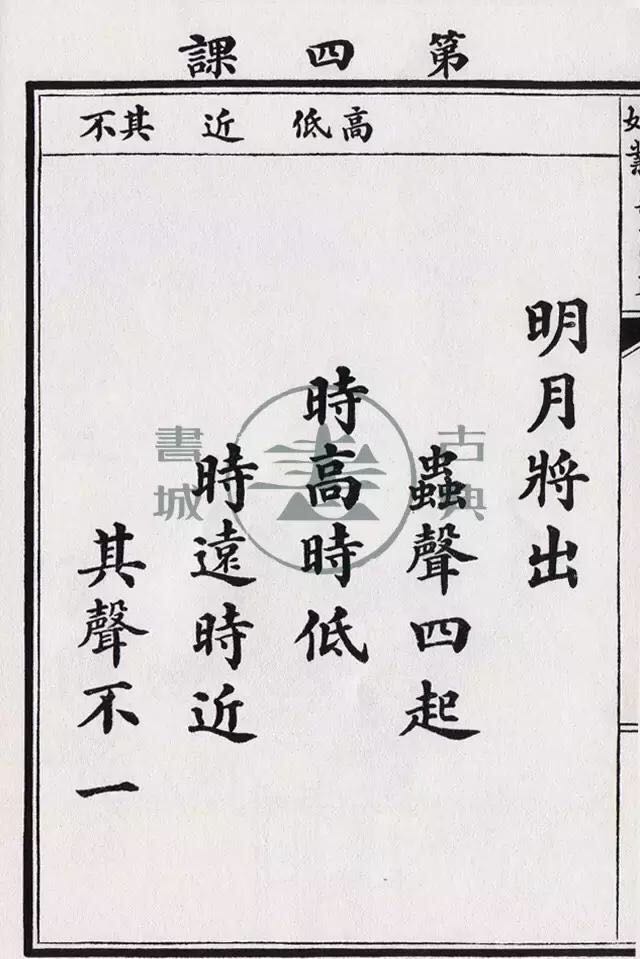 第四課
高低 近 其不
明月將出
蟲聲四起
時高時低
時遠時近
其聲不一
古典
書城